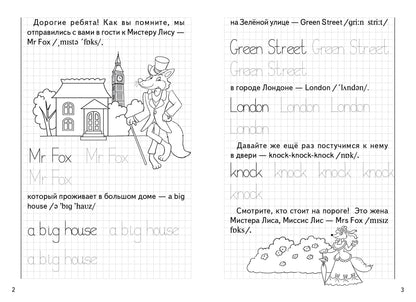 Дорогие ребята! Как вы помните, мы
отправились с вами в гости к Мистеру Лису —
Mr Fox /ˌmɪstə ˈfɒks/,
Mr Fox Mr Fox
Mr Fox
который проживает в большом доме — a big
house /ə ˈbɪg ˈhaʊz/
a big house a big house
a big house a big house
2
на Зелёной улице — Green Street /gri:n stri:t/
Green Street Green Street
Green Street
в городе Лондоне — London /ˈlʌndən/.
London London London
London
Давайте же ещё раз постучимся к нему
в двери — knock-knock-knock /nɒk/.
knock knock knock knock
knock
Смотрите, кто стоит на пороге! Это жена
Мистера Лиса, Миссис Лис — Mrs Fox /ˌmɪsɪz
fɒks/.
3